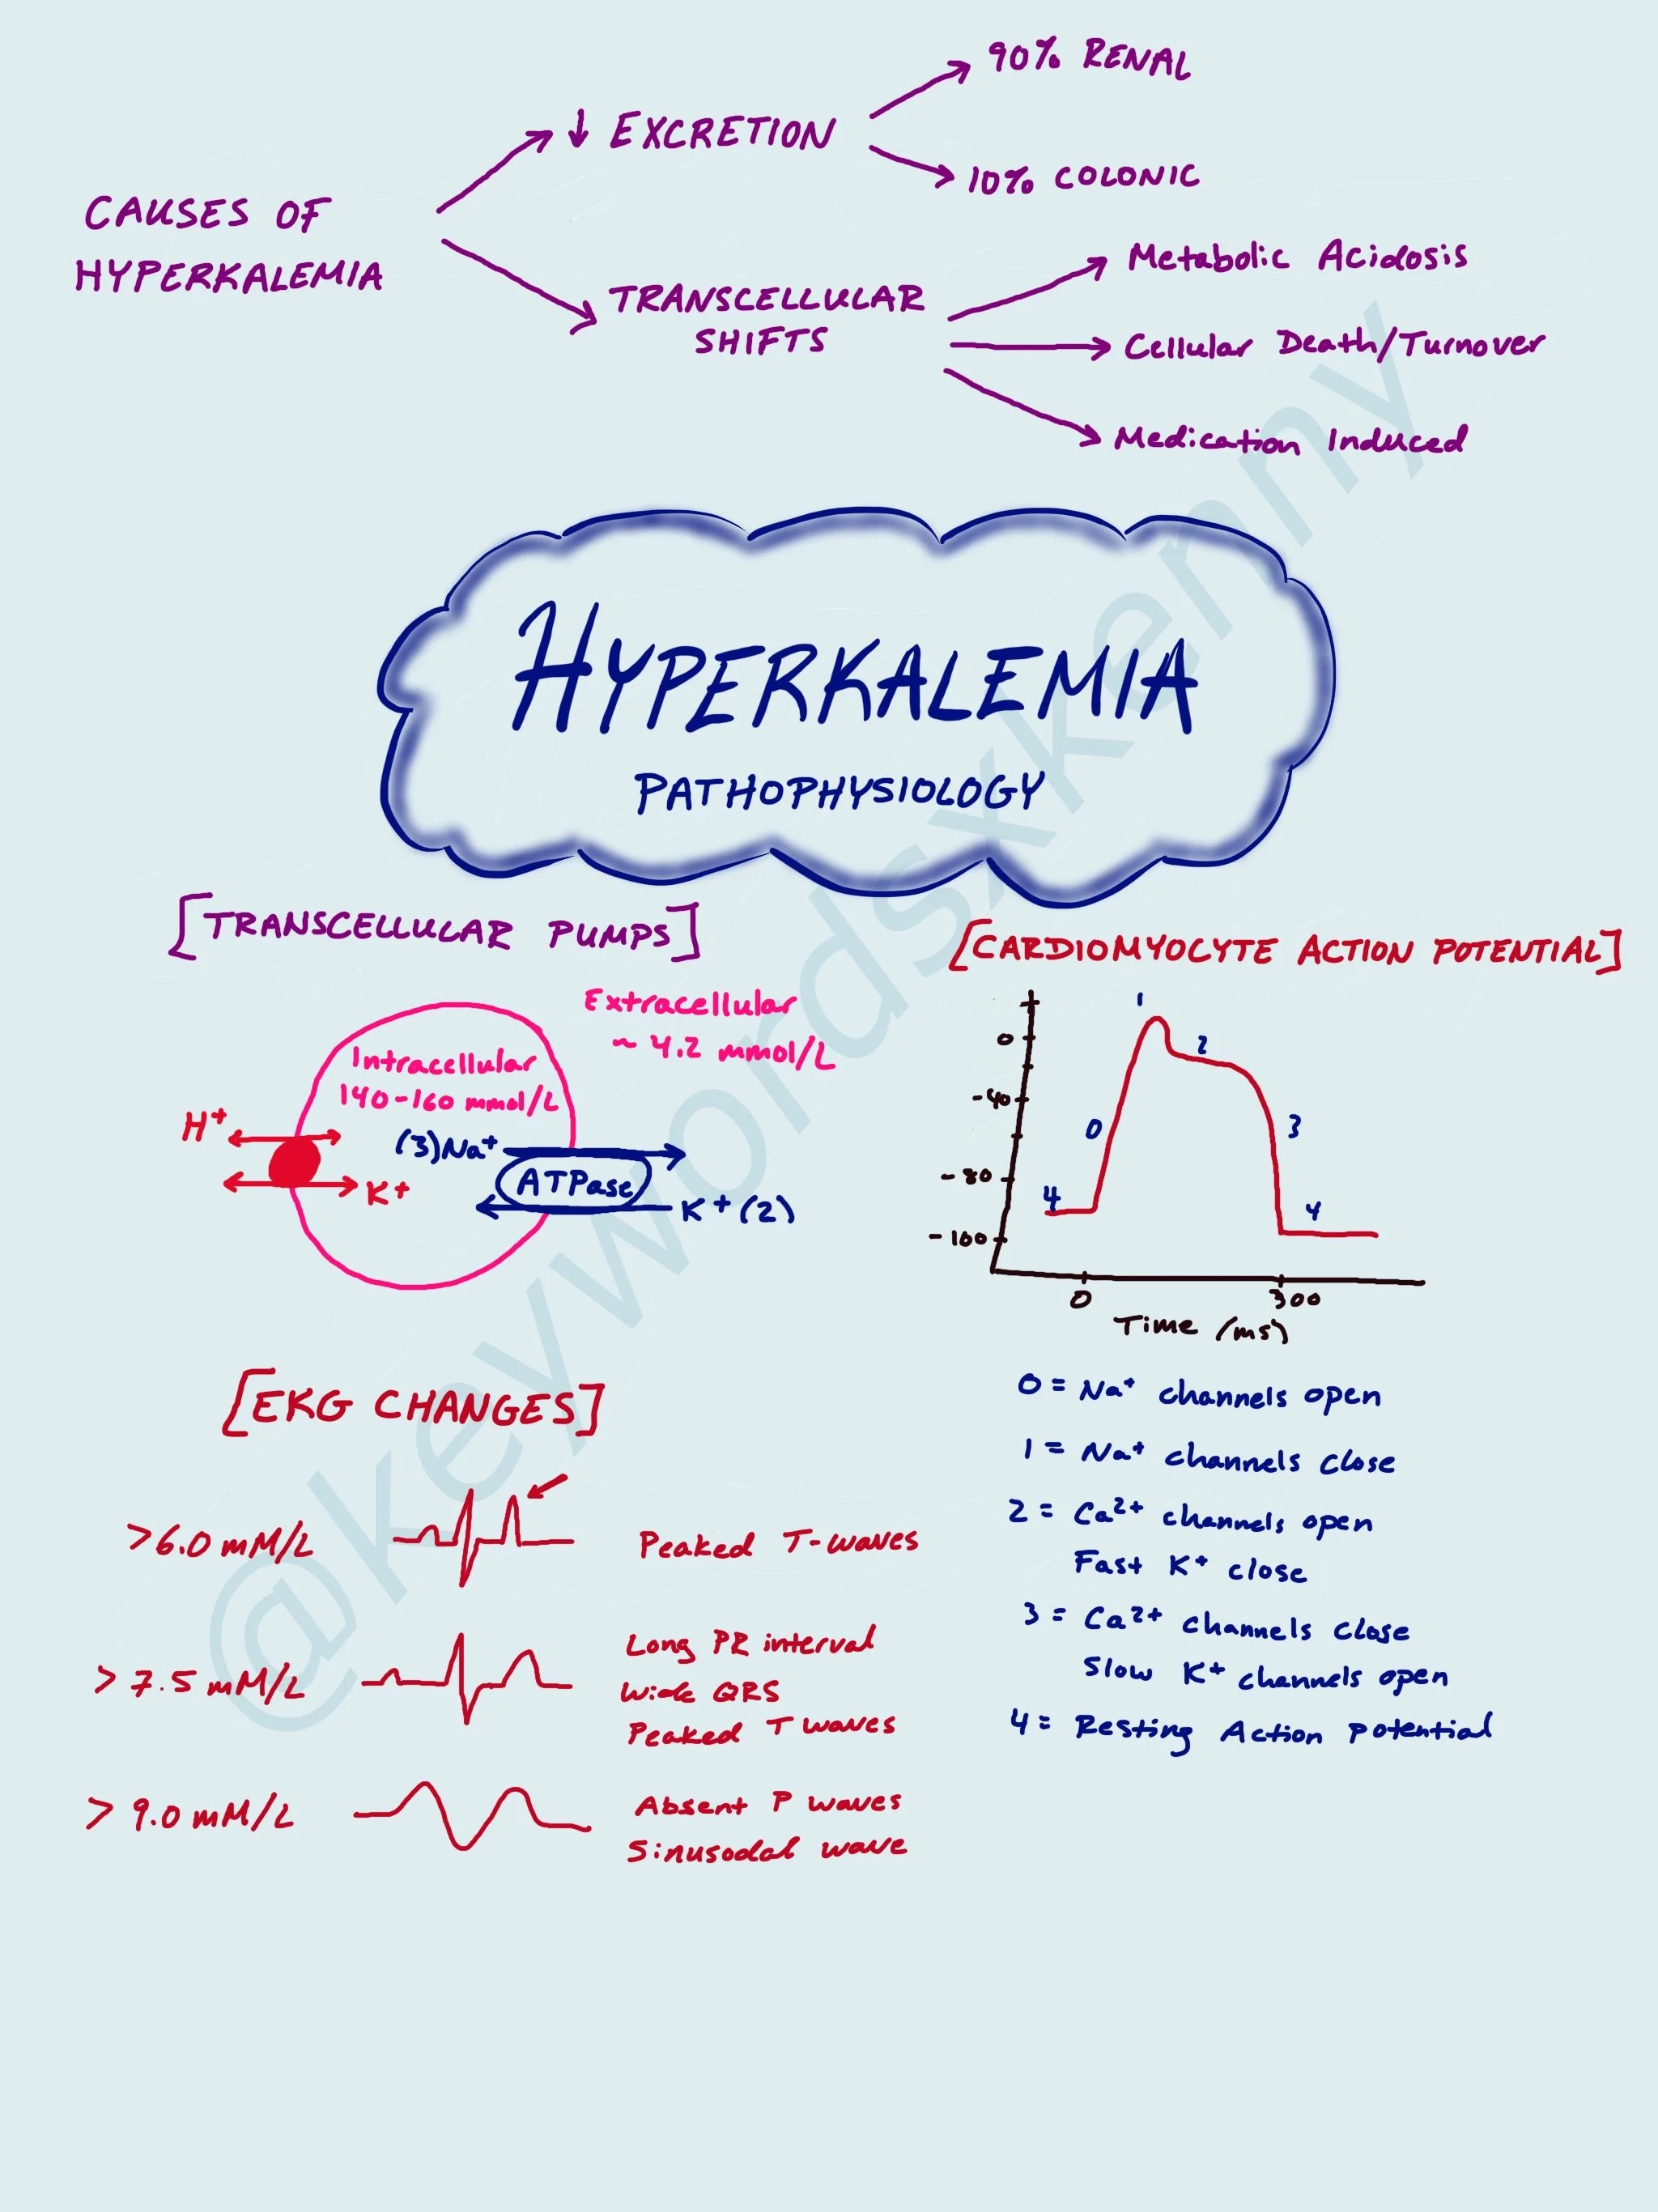 90% RENAL
↓ EXCRETION
10% COLONIC
CAUSES OF
HYPERKALEMIA
TRANSCELLULAR
SHIFTS
Metabolic Acidosis
Cellular Death/Turnover
Medication Induced
HYPERKALEMIA
PATHOPHYSIOLOGY
[TRANSCELLULAR PUMPS]
Extracellular
~ 4.2 mmol/L
Intracellular
140-160 mmol/L
H+
K+
(3)Na+
ATPase
K+(2)
[CARDIOMYOCYTE ACTION POTENTIAL]
0
-40
-80
-100
4
0
1
2
3
4
0
300
Time (ms)
0 = Na+ channels open
1 = Na+ channels close
2 = Ca2+ channels open
Fast K+ close
3 = Ca2+ channels close
Slow K+ channels open
4 = Resting Action potential
[EKG CHANGES]
>6.0 mM/L
Peaked T-waves
> 7.5 mM/L
Long PR interval
Wide QRS
Peaked T waves
> 9.0 mM/L
Absent P waves
Sinusodal wave
@keywordsxkenny